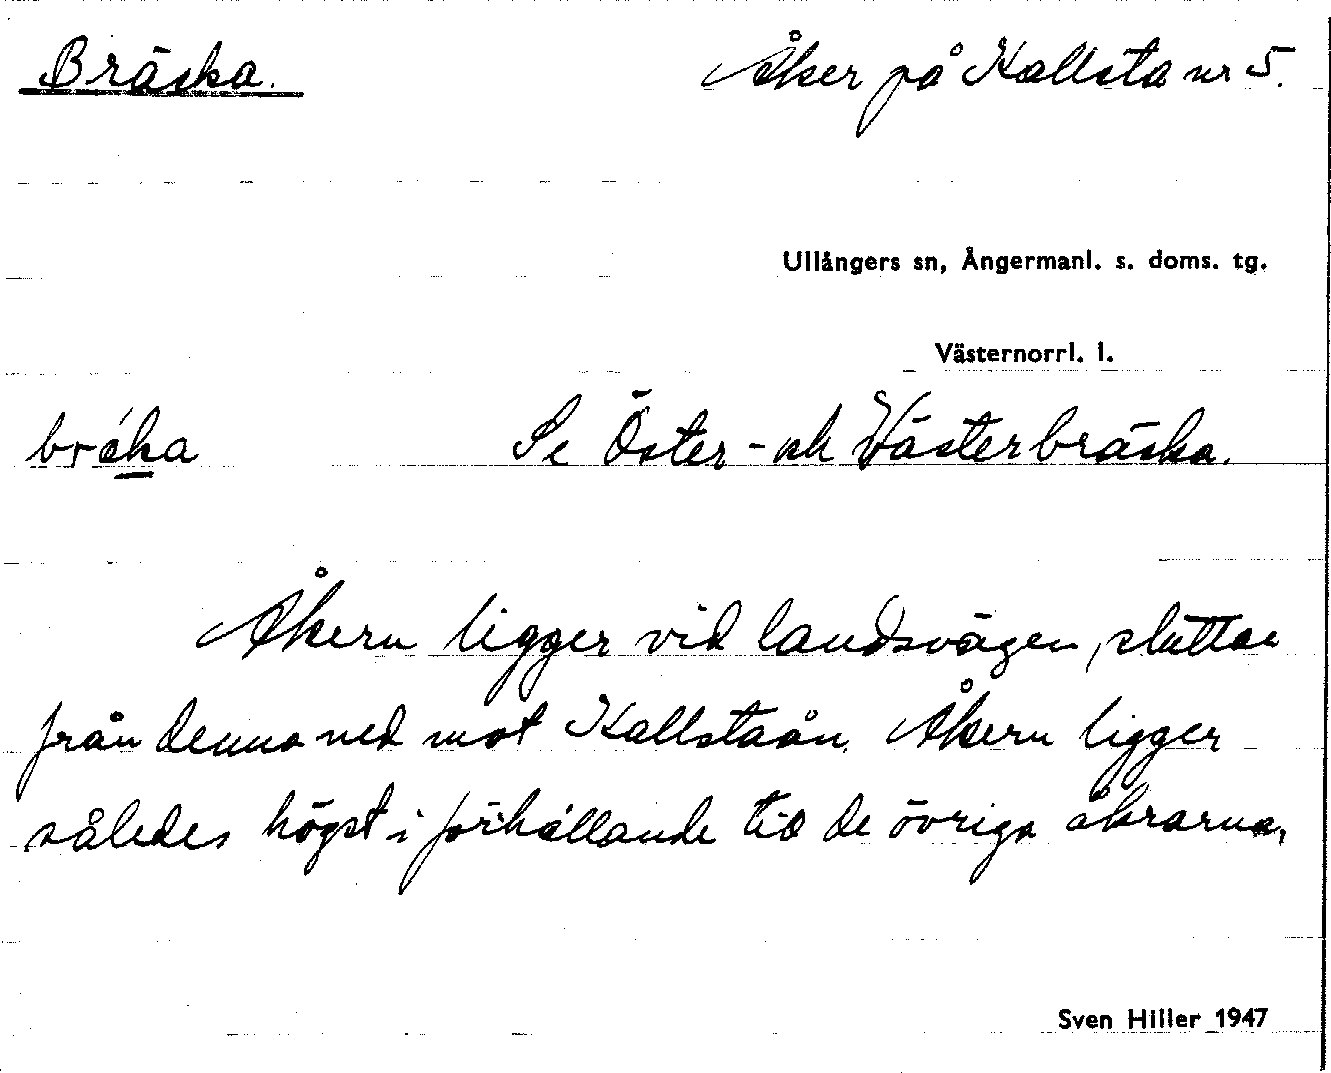 Bräska. Åker på Kallsta nr 5.
Ullångers sn, Ångermanl. s. doms. tg.
Västernorrl. l.
Se Öster- och Västerbräska.
Åkern ligger vid landsvägen, sluttar
från denna ned mot Kallstaån. Åkern ligger
således högst i förhållande till de övriga åkrarna,
Sven Hiller 1947